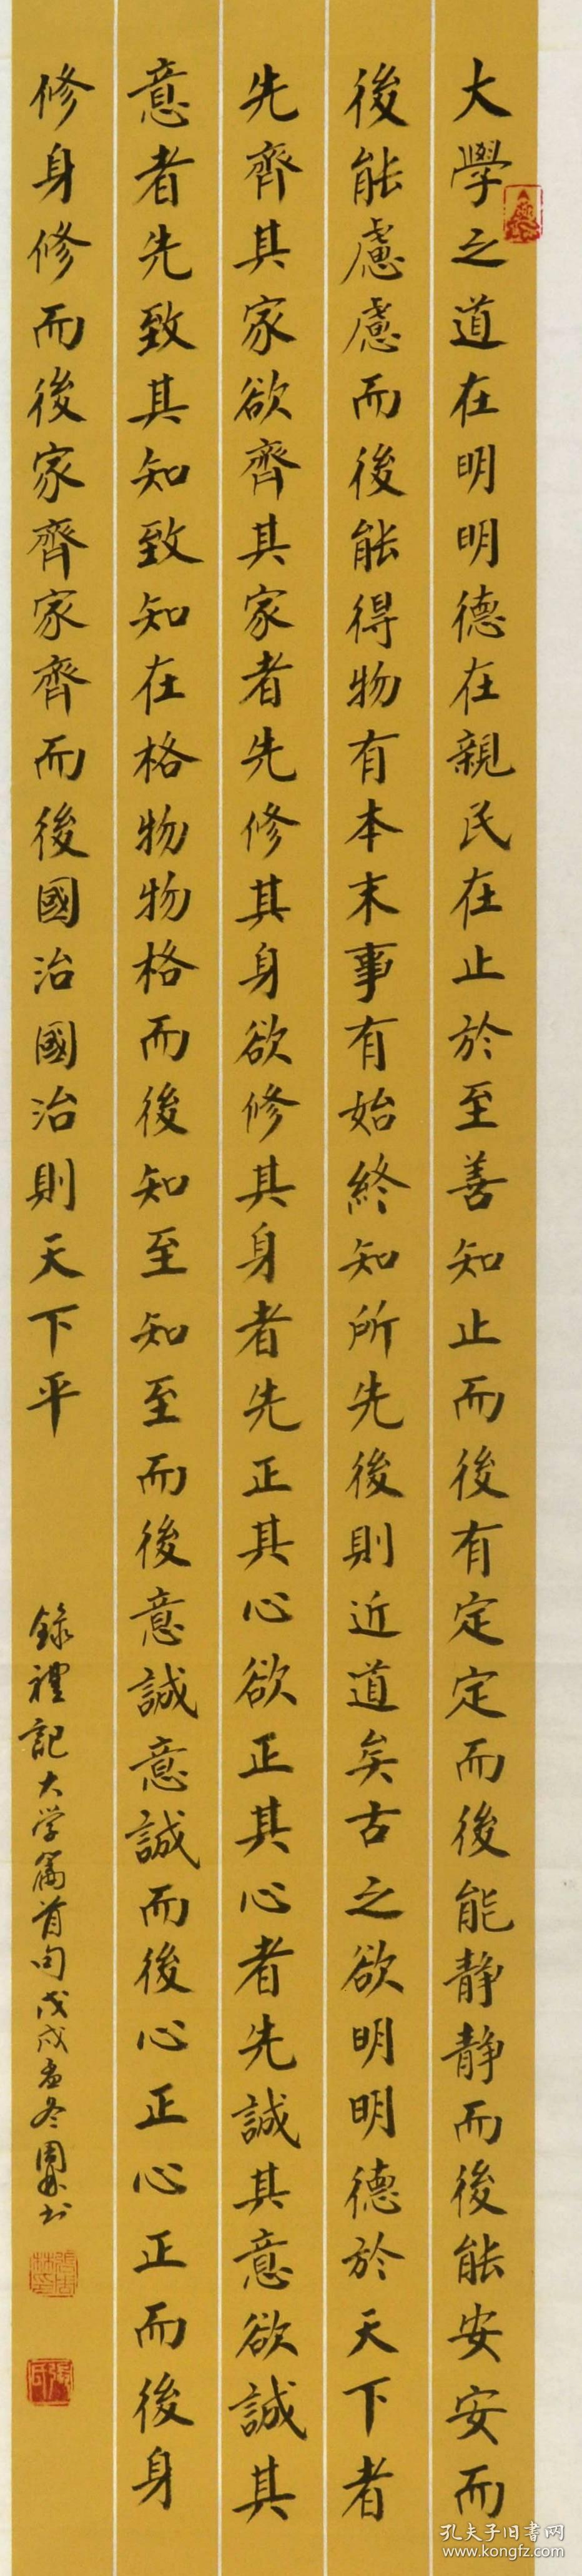 大學之道在明明德在親民在止於至善知止而後有定定而後能静静而後能安安而
後能慮慮而後能得物有本末事有始終知所先後則近道矣古之欲明明德於天下者
先齊其家欲齊其家者先修其身欲修其身者先正其心欲正其心者先誠其意欲誠其
意者先致其知致知在格物物格而後知至知至而後意誠意誠而後心正心正而後身
修身修而後家齊家齊而後國治國治則天下平
錄禮記大学篇首句戊戌孟冬周林书
孔夫子旧书网
www.kongfz.com